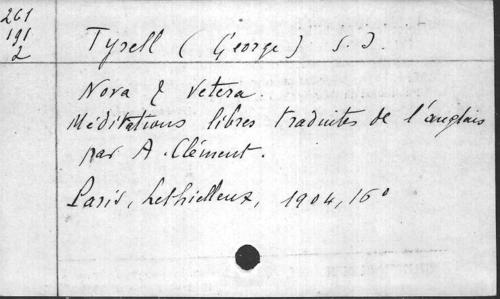 261
191
2
Tyrell (George) S.J.
Nova & Vetera.
Méditations libres traduites de l'anglais
par A. Clément.
Paris, Lethielleux, 1904, 16°